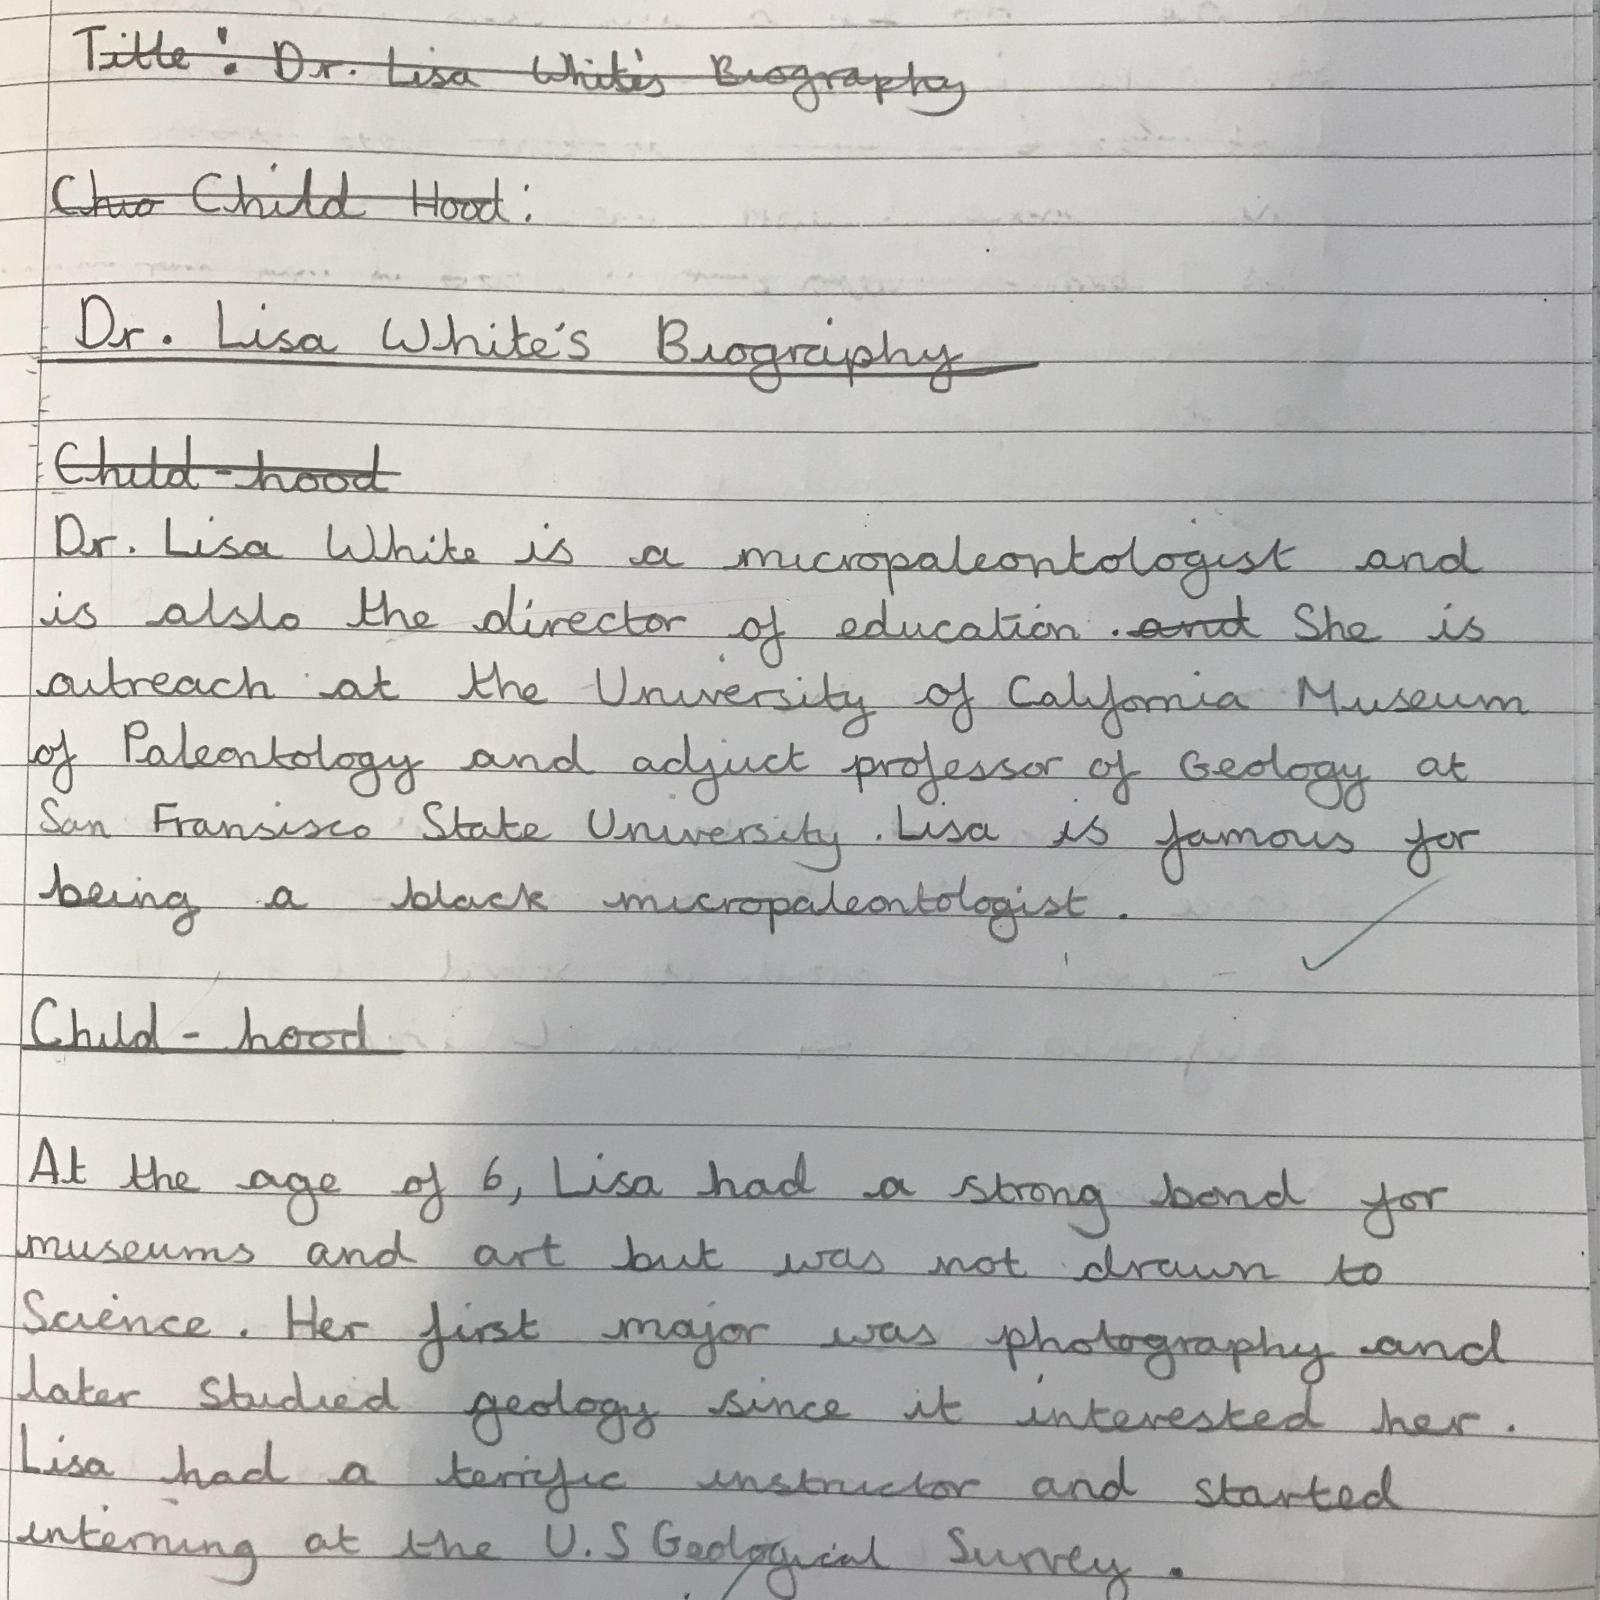 Title: Dr. Lisa White's Biography
Chio Child Hood:
Dr. Lisa White's Biography
Child-hood
Dr. Lisa White is a micropaleontologist and
is alslo the director of education. and She is
outreach at the University of California Museum
of Paleontology and adjuct professor of Geology at
San Fransisco State University. Lisa is famous for
being a black micropaleontologist.
Child-hood
At the age of 6, Lisa had a strong bond for
museums and art but was not drawn to
Science. Her first major was photography and
later studied geology since it interested her.
Lisa had a terrific instructor and started
interning at the U.S Geological Survey.